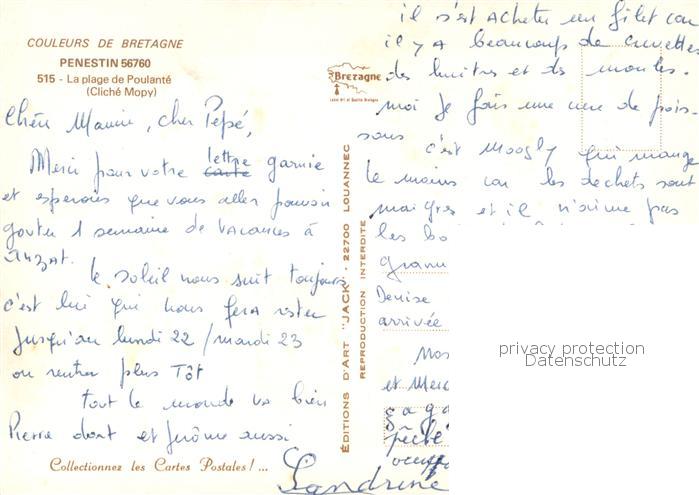 COULEURS DE BRETAGNE
PENESTIN 56760
515 - La plage de Poulanté
(Cliché Mopy)
Chère Mamie, cher Pépé,
Merci pour votre carte lettre garnie
et espérons que vous allez pouvoir
gouter 1 semaine de vacances à
Anzat.
le soleil nous suit toujours
c'est lui qui nous fera rester
jusqu'au lundi 22 / mardi 23
ou rentrer plus Tôt
tout le monde va bien
Pierre dort et Jérôme aussi
Collectionnez les Cartes Postales ! ...
Sandrine
ÉDITIONS D'ART "JACK" - 22700 LOUANNEC
REPRODUCTION INTERDITE
Bretagne
il s'est acheter un filet car
il y a beaucoup de crevettes
des huitres et des moules.
moi je fais une cure de pois-
sons c'est Moogly qui mange
le moins car les dechets sont
maigres et il n'aime pas
les bo
Denise
arrivée
Nos
et Merc
pêche
privacy protection
Datenschutz